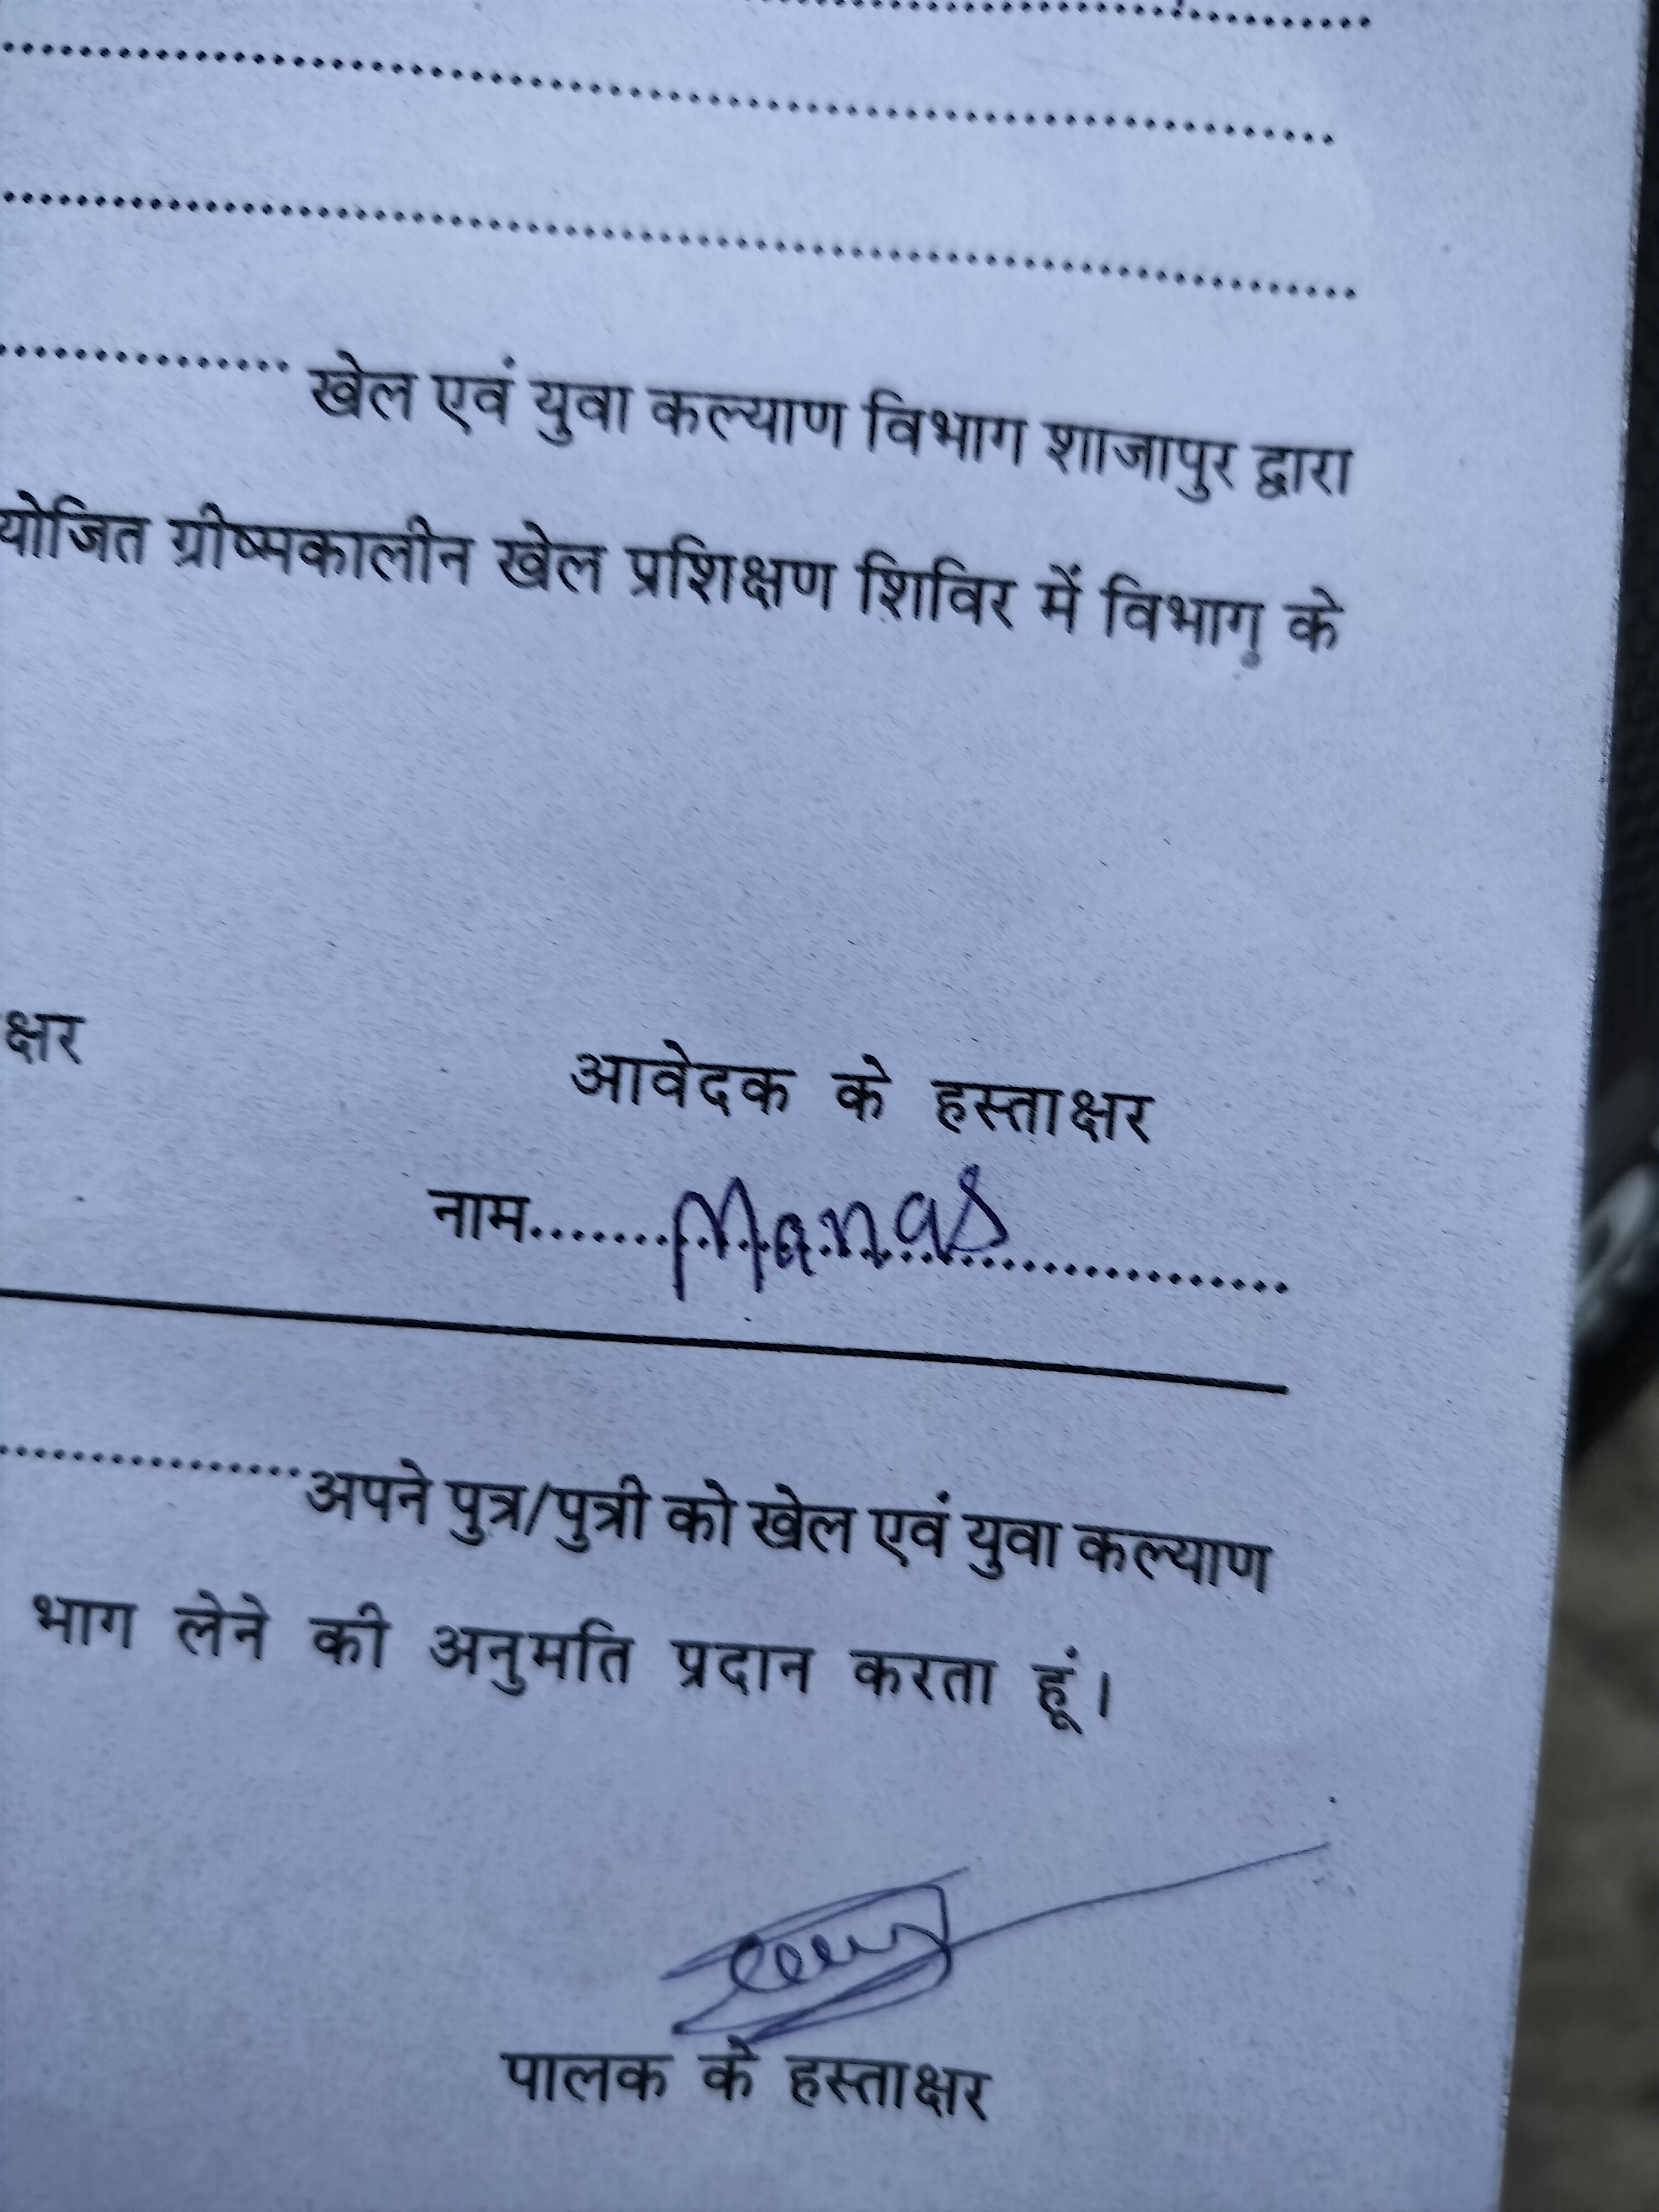 खेल एवं युवा कल्याण विभाग शाजापुर द्वारा
योजित ग्रीष्मकालीन खेल प्रशिक्षण शिविर में विभाग के
क्षर
आवेदक के हस्ताक्षर
नाम.......Manas...................
...............अपने पुत्र/पुत्री को खेल एवं युवा कल्याण
भाग लेने की अनुमति प्रदान करता हूं।
पालक के हस्ताक्षर